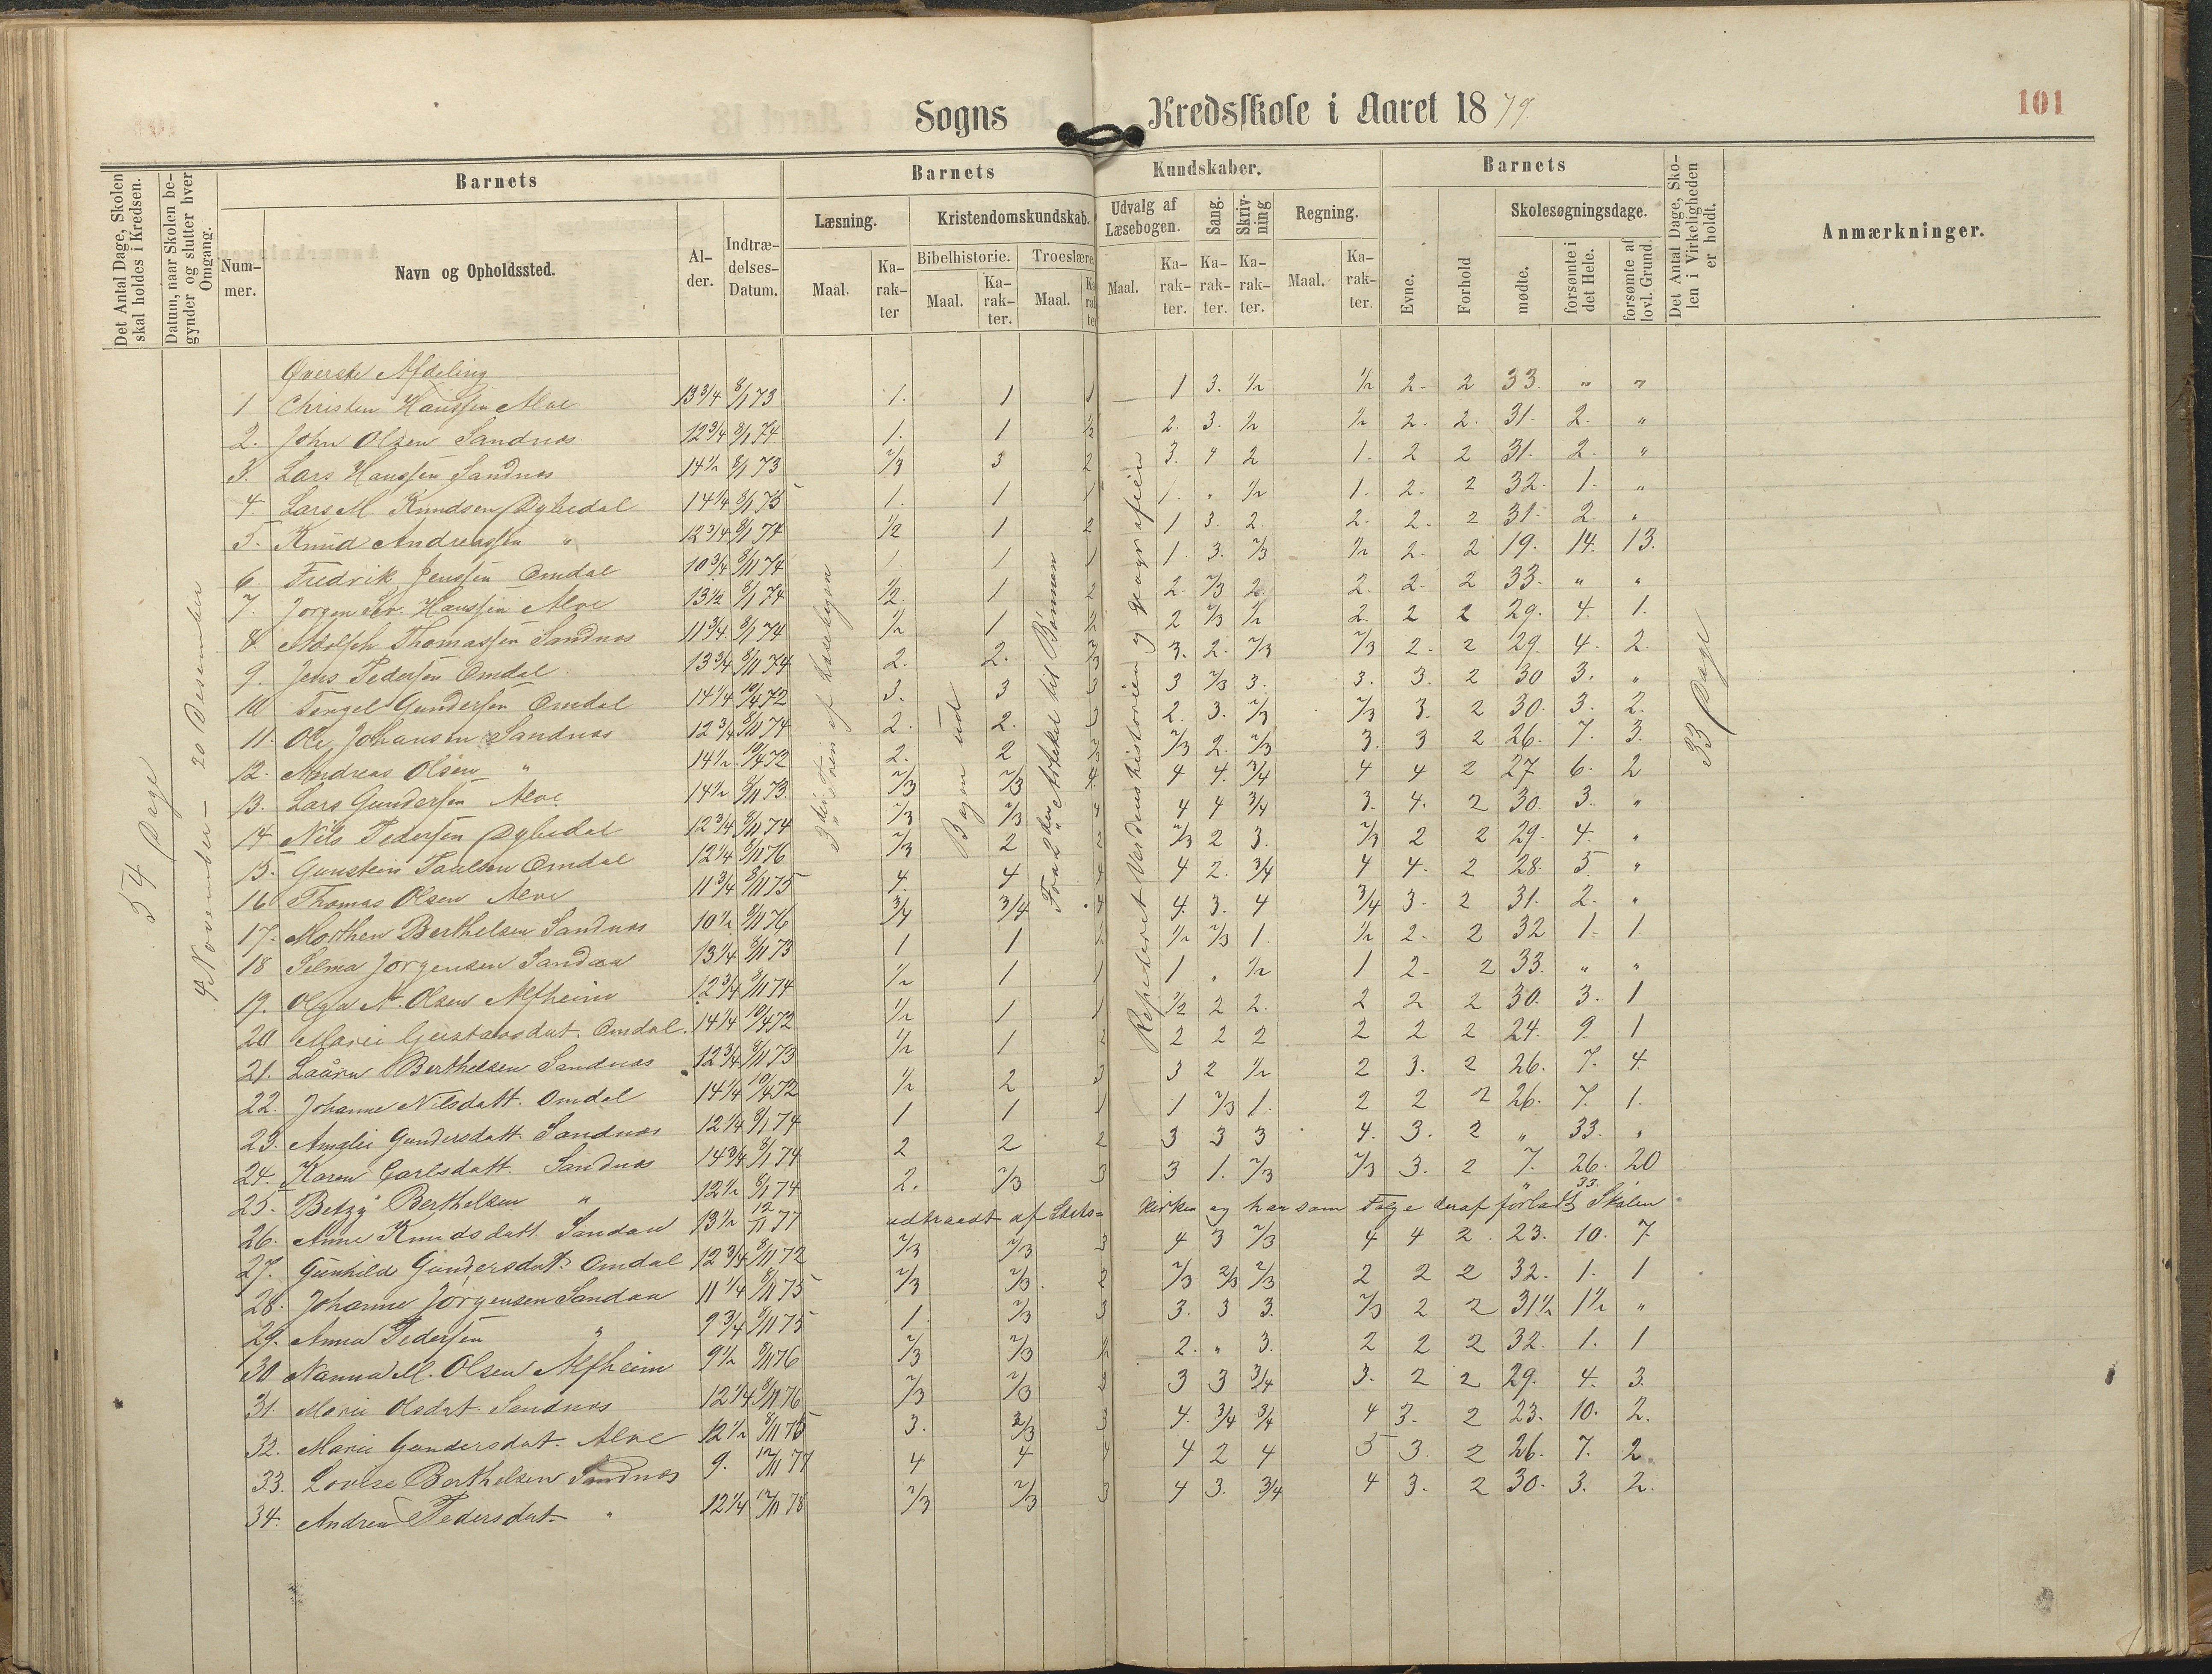 Sogns Kredsskole i Aaret 1879. 101
Det Antal Dage, Skolen skal holdes i Kredsen.
Datum, naar Skolen begynder og slutter hver Omgang.
Barnets
Nummer.
Navn og Opholdssted.
Alder.
Indtrædelses-Datum.
Barnets Kundskaber.
Læsning.
Maal. Karakter
Kristendomskundskab.
Bibelhistorie. Troeslære.
Maal. Karakter. Maal. Karakter
Udvalg af Læsebogen.
Maal. Karakter.
Sang. Karakter.
Skrivning Karakter.
Regning.
Maal. Karakter.
Barnets
Evne. Forhold
Skolesøgningsdage.
mødte. forsømte i det Hele. forsømte af lovl. Grund.
Det Antal Dage, Skolen i Virkeligheden er holdt.
Anmærkninger.
54 Dage
4 November – 20 Desember
3die Trin af Læsebogen
Bogen ud
Fra 2den Artikel til Bønnen
Repeteret Verdenshistorien og Geografien
33 Dage
Øverste Afdeling
1 Christen Hanssen Alve 13 3/4 8/1 73 1. 1 1 1 3. 1/2 1/2 2. 2 33. " "
2. John Olsen Sandnes 12 3/4 8/1 74 1. 1 1/2 2. 3. 1/2 1/2 2. 2. 31. 2. "
3. Lars Hanssen Sandnes 14 1/2 8/1 73 2/3 3 2 3. 4 2 1. 2 2 31. 2. "
4. Lars M. Knudsen Dybedal 14 1/4 8/1 75 1. 1 1 1. " 1/2 1. 2. 2 32. 1. "
5. Knud Andreassen " 12 3/4 8/1 74 1/2 1 2 1 3. 2. 2. 2. 2 31. 2. "
6. Fredrik Jenssen Omdal 10 3/4 8/11 74 1 1 1 1. 3. 2/3 1/2 2. 2 19. 14. 13.
7. Jørgen Hanssen Alve 13 1/2 8/1 74 1/2 1 2 2. 2/3 2. 2. 2. 2 33. " "
8. Adolph Thomassen Sandnes 11 3/4 8/1 74 1/2 1 1/2 2 2/3 1/2 2. 2 2 29. 4. 1.
9. Jens Pedersen Omdal 13 3/4 8/11 74 2. 2. 2/3 3. 2. 2/3 2/3 2. 2 29. 4. 2.
10 Tengel Gundersen Omdal 14 1/4 10/4 72 3. 3 3 3 2/3 3. 3. 3. 2 30 3. "
11. Ole Johansen Sandnes 12 3/4 8/11 74 2. 2. 3 2. 3. 2/3 2/3 3. 2 30. 3. 2.
12. Andreas Olsen " 14 1/2 10/4 72 2. 2 2/3 2/3 2. 2/3 3. 3 2 26. 7. 3.
13. Lars Gundersen Alve 14 1/2 8/11 73. 2/3 2/3 4 4 4. 3/4 4 4 2 27 6. 2
14 Nils Pedersen Dybedal 12 3/4 8/11 74 2/3 2/3 4 4 4 3/4 3. 4. 2 30. 3. "
15. Gunstein Paulsen Omdal 12 1/4 8/11 76 2/3 2 2 2/3 2 3. 2/3 2 2 29. 4. "
16 Thomas Olsen Alve 11 3/4 8/11 75 4. 4 4 4 2. 3/4 4 4. 2 28. 5. "
17. Morthen Berthelsen Sandnes 10 1/2 8/11 76 3/4 3/4 4 4. 3. 4 3/4 3. 2 31. 2. "
18 Selma Jørgensen Sandaa 13 1/4 8/11 73 1 1 1/2 1/2 2/3 1. 1/2 2. 2 32 1. 1.
19. Olga N. Olsen Alfheim 12 3/4 8/11 74 1/2 1 1 1 " 1/2 1 2. 2 33. " "
20 Marie Gustavsdat. Omdal. 14 1/4 10/4 72 1/2 1 1 1/2 2 2. 2 2 2 30. 3. 1
21. Laura Berthelsen Sandnes 12 3/4 8/11 73 1/2 1 2 2 2 2 2 2 2 24. 9. 1
22. Johanne Nilsdatt. Omdal 14 1/4 10/4 72 1/2 2 3 3 2 1/2 2 3. 2 26. 7. 4.
23. Amalie Gundersdatt. Sandnes 12 1/4 8/1 74 1 1 1 1 2/3 1. 2 2 2 26. 7. 1.
24. Karen Carlsdatt. Sandnes 14 3/4 8/1 74 2 2 2 3 3 3 4. 3. 2 " 33. "
25. Betzy Berthelsen " 12 1/2 8/1 74 2. 2/3 3 3 1. 2/3 2/3 3. 2 7. 26. 20
26. Anne Knudsdatt. Sandaa 13 1/2 12/11 77 udtraedt af Stats-kirken og har som Følge deraf forladt Skolen " 33.
27. Gunhild Gundersdat. Omdal 12 3/4 8/11 72 2/3 2/3 3 4 3 2/3 4 4 2 23. 10. 7
28. Johanne Jørgensen Sandaa 11 1/4 8/11 75 2/3 2/3. 2 2/3 2/3 2/3 2 2 2 32. 1. 1
29. Anna Pedersen " 9 3/4 8/11 75 1. 2/3 3 3. 3 3. 2/3 2 2 31 1/2 1 1/2 "
30 Nanna M. Olsen Alfheim 9 1/2 8/11 76 2/3 2/3 1/2 2. " 3. 2 2 2 32. 1. 1
31. Marie Olsdat. Sandnes 12 1/4 8/11 76 2/3 2/3 3 3 3 3/4 3. 2 2 29. 4. 3.
32. Marie Gundersdat. Alve 12 1/2 8/11 75 3. 2/3 3 4. 3/4 3/4 4 3. 2 23. 10. 2.
33. Lovise Berthelsen Sandnes 9. 12/11 77 4 4 4 4 2 4 5 3. 2 26. 7. 2
34. Andrea Pedersdat. " 12 1/4 12/11 78 2/3 2/3 3 4 3. 3/4 4 3. 2 30. 3. 2.